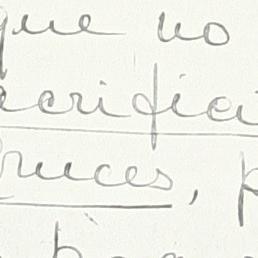 que no
acrifici
ruces, p